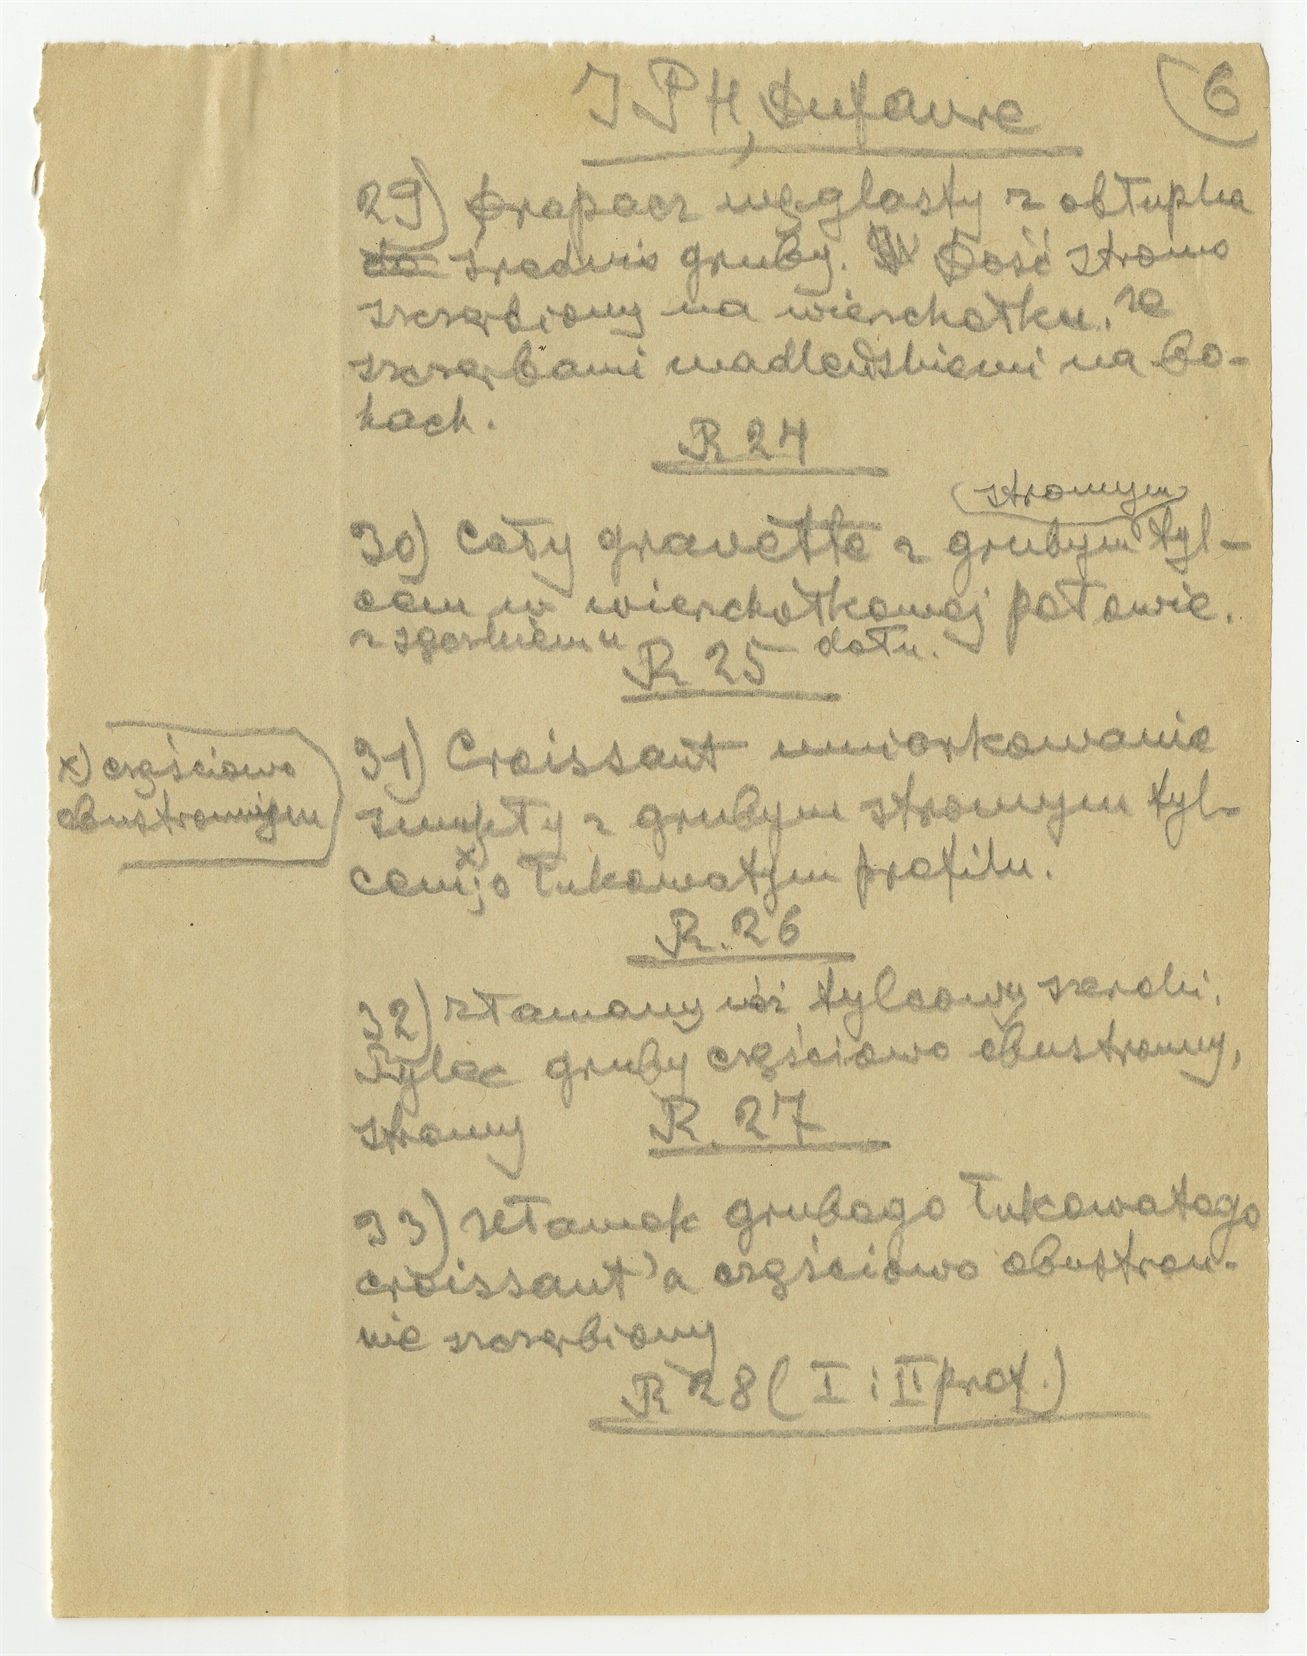 IPH, Dufaure
6
29) Drapacz węglasty z obłupka
do średnio gruby. Dość stromo
szczerbiony na wierzchołku, ze
szczerbami nadlewskiemi na bo-
kach.
R 24
(stromym)
30) Cały gravette z grubym tyl-
cem w wierzchołkowej połowie.
z zgorkiem u dołu.
R 25
31) Croissant umiarkowanie
smukły z grubym stromym tyl-
cem x) o łukowatym profilu.
x) częściowo
obustronnym
R. 26
32) złamany nóż tylcowy szeroki.
Tylec gruby częściowo obustronny,
stromy
R. 27
33) ułamek grubego łukowatego
croissant'a częściowo obustron-
nie szczerbiony
R 28 (I i II prof.)